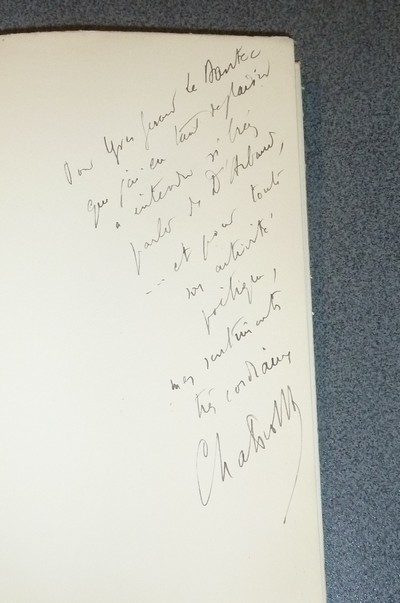 Pour Yves Gérard Le Dantec
que j'ai eu tant de plaisir
à entendre si bien
parler de D'Arbaud,
... et pour toute
son activité
poétique,
mes sentiments
très cordiaux